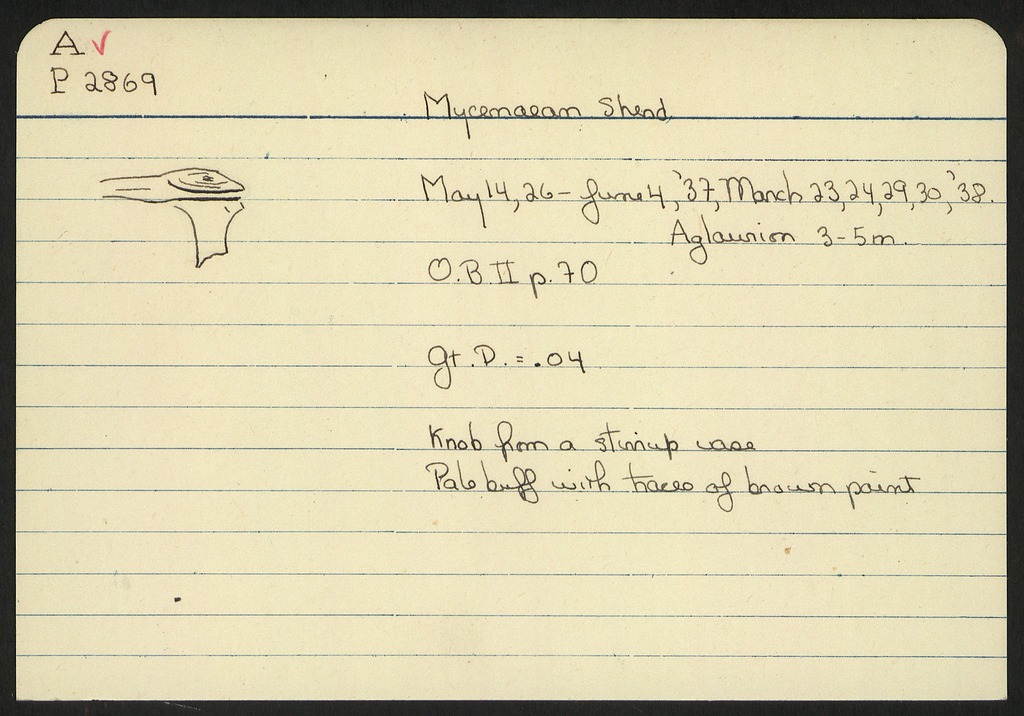 A ✓
P 2869
Mycenaean Sherd
May 14, 26 - June 4, '37, March 23, 24, 29, 30, '38.
Aglaurion 3-5m.
O.B. II p. 70
Gt. D. = .04
Knob from a stirrup vase
Pale buff with traces of brown paint